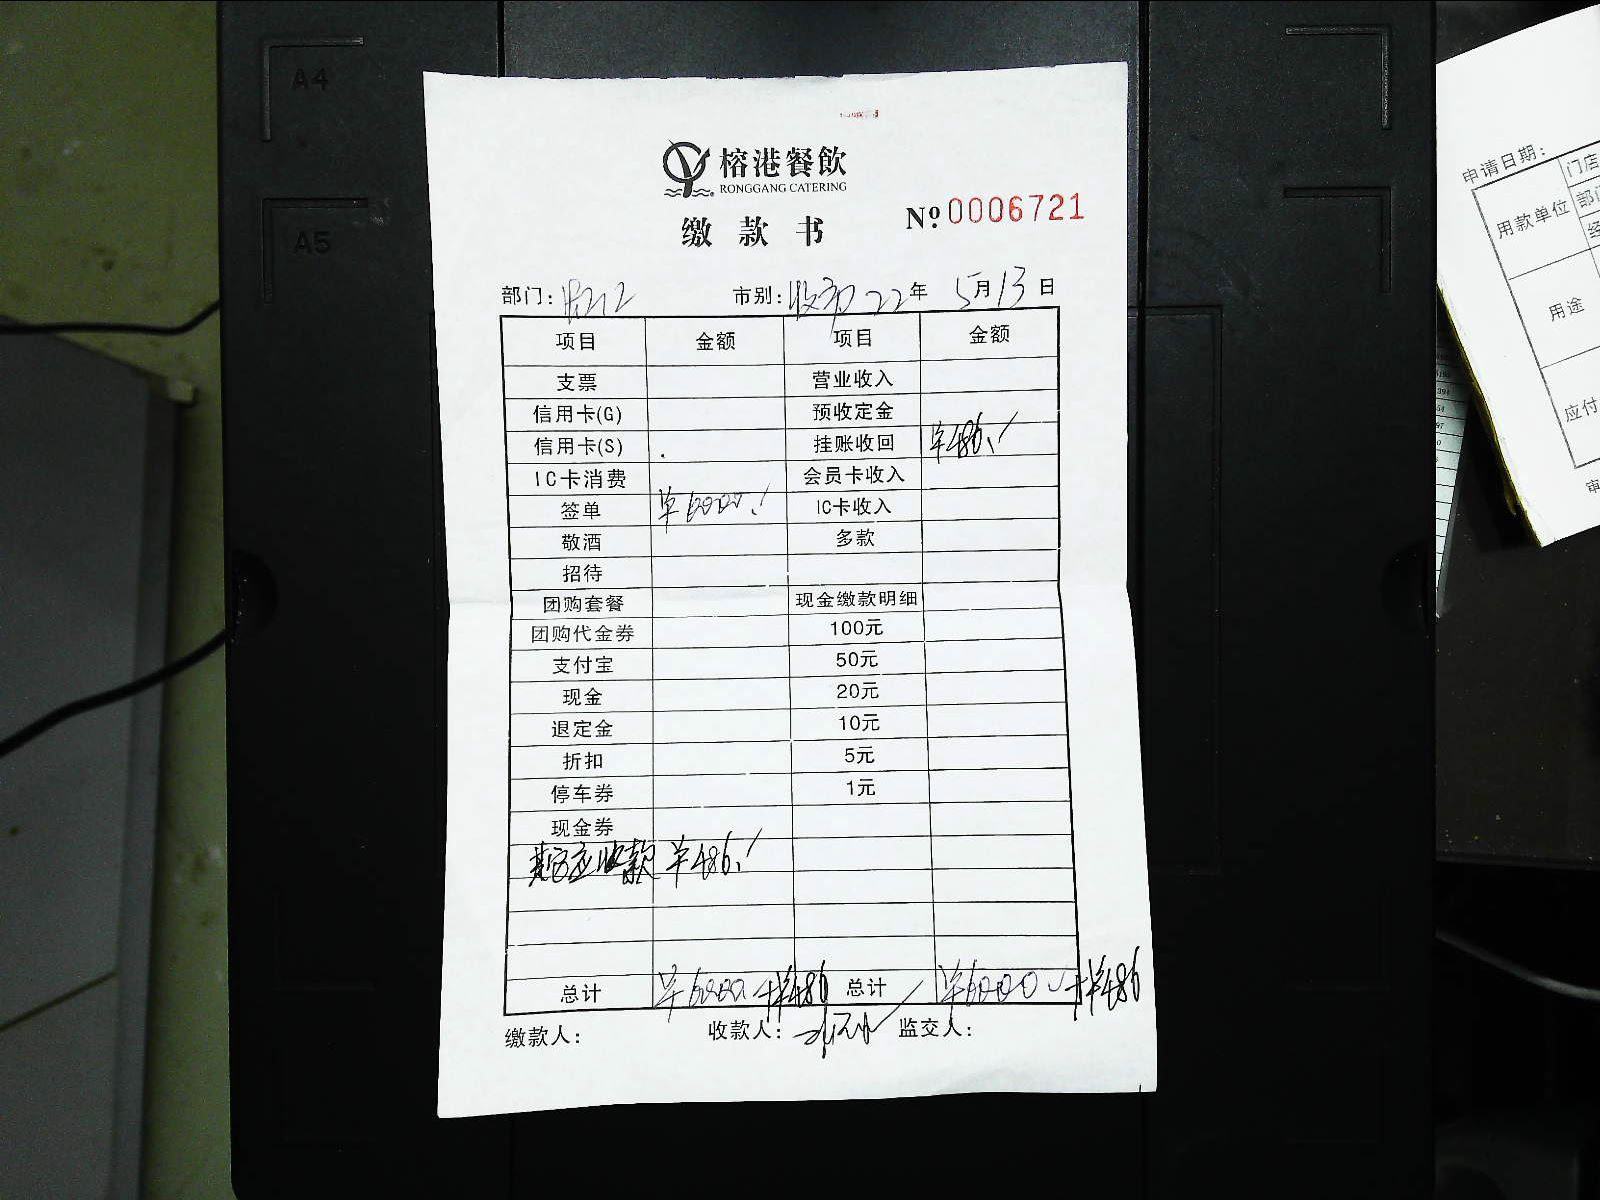 A4
A5
榕港餐飲
RONGGANG CATERING
缴款书
№ 0006721
部门: 市别: 22年 5月13日
项目 金额 项目 金额
支票 营业收入
信用卡(G) 预收定金
信用卡(S) 挂账收回 ¥486./
IC卡消费 会员卡收入
签单 ¥6000./ IC卡收入
敬酒 多款
招待
团购套餐 现金缴款明细
团购代金券 100元
支付宝 50元
现金 20元
退定金 10元
折扣 5元
停车券 1元
现金券
应收款 ¥486./
总计 ¥6000 +¥486 总计 ¥6000 +¥486
缴款人: 收款人: 监交人:
申请日期:
用款单位
门店
部门
用途
应付